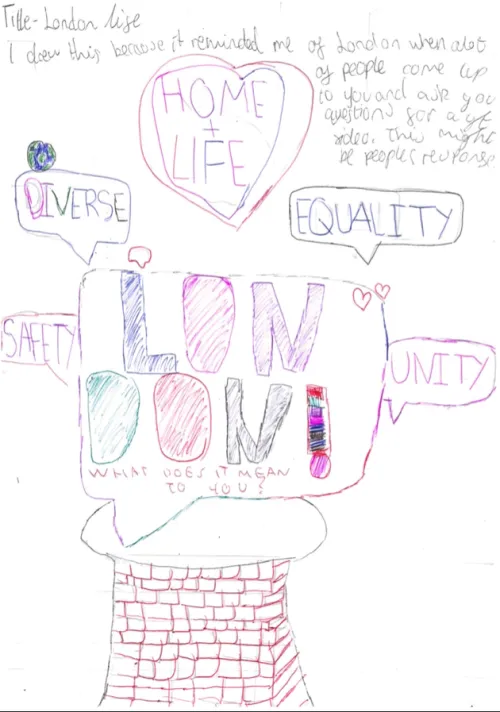 Title- London life
I drew this because it reminded me of London when alot
of people come up
to you and ask you
questions for a yt
video. This might
be peoples response
HOME
+
LIFE
DIVERSE
EQUALITY
SAFETY
LON
DON!
UNITY
WHAT DOES IT MEAN
TO YOU?